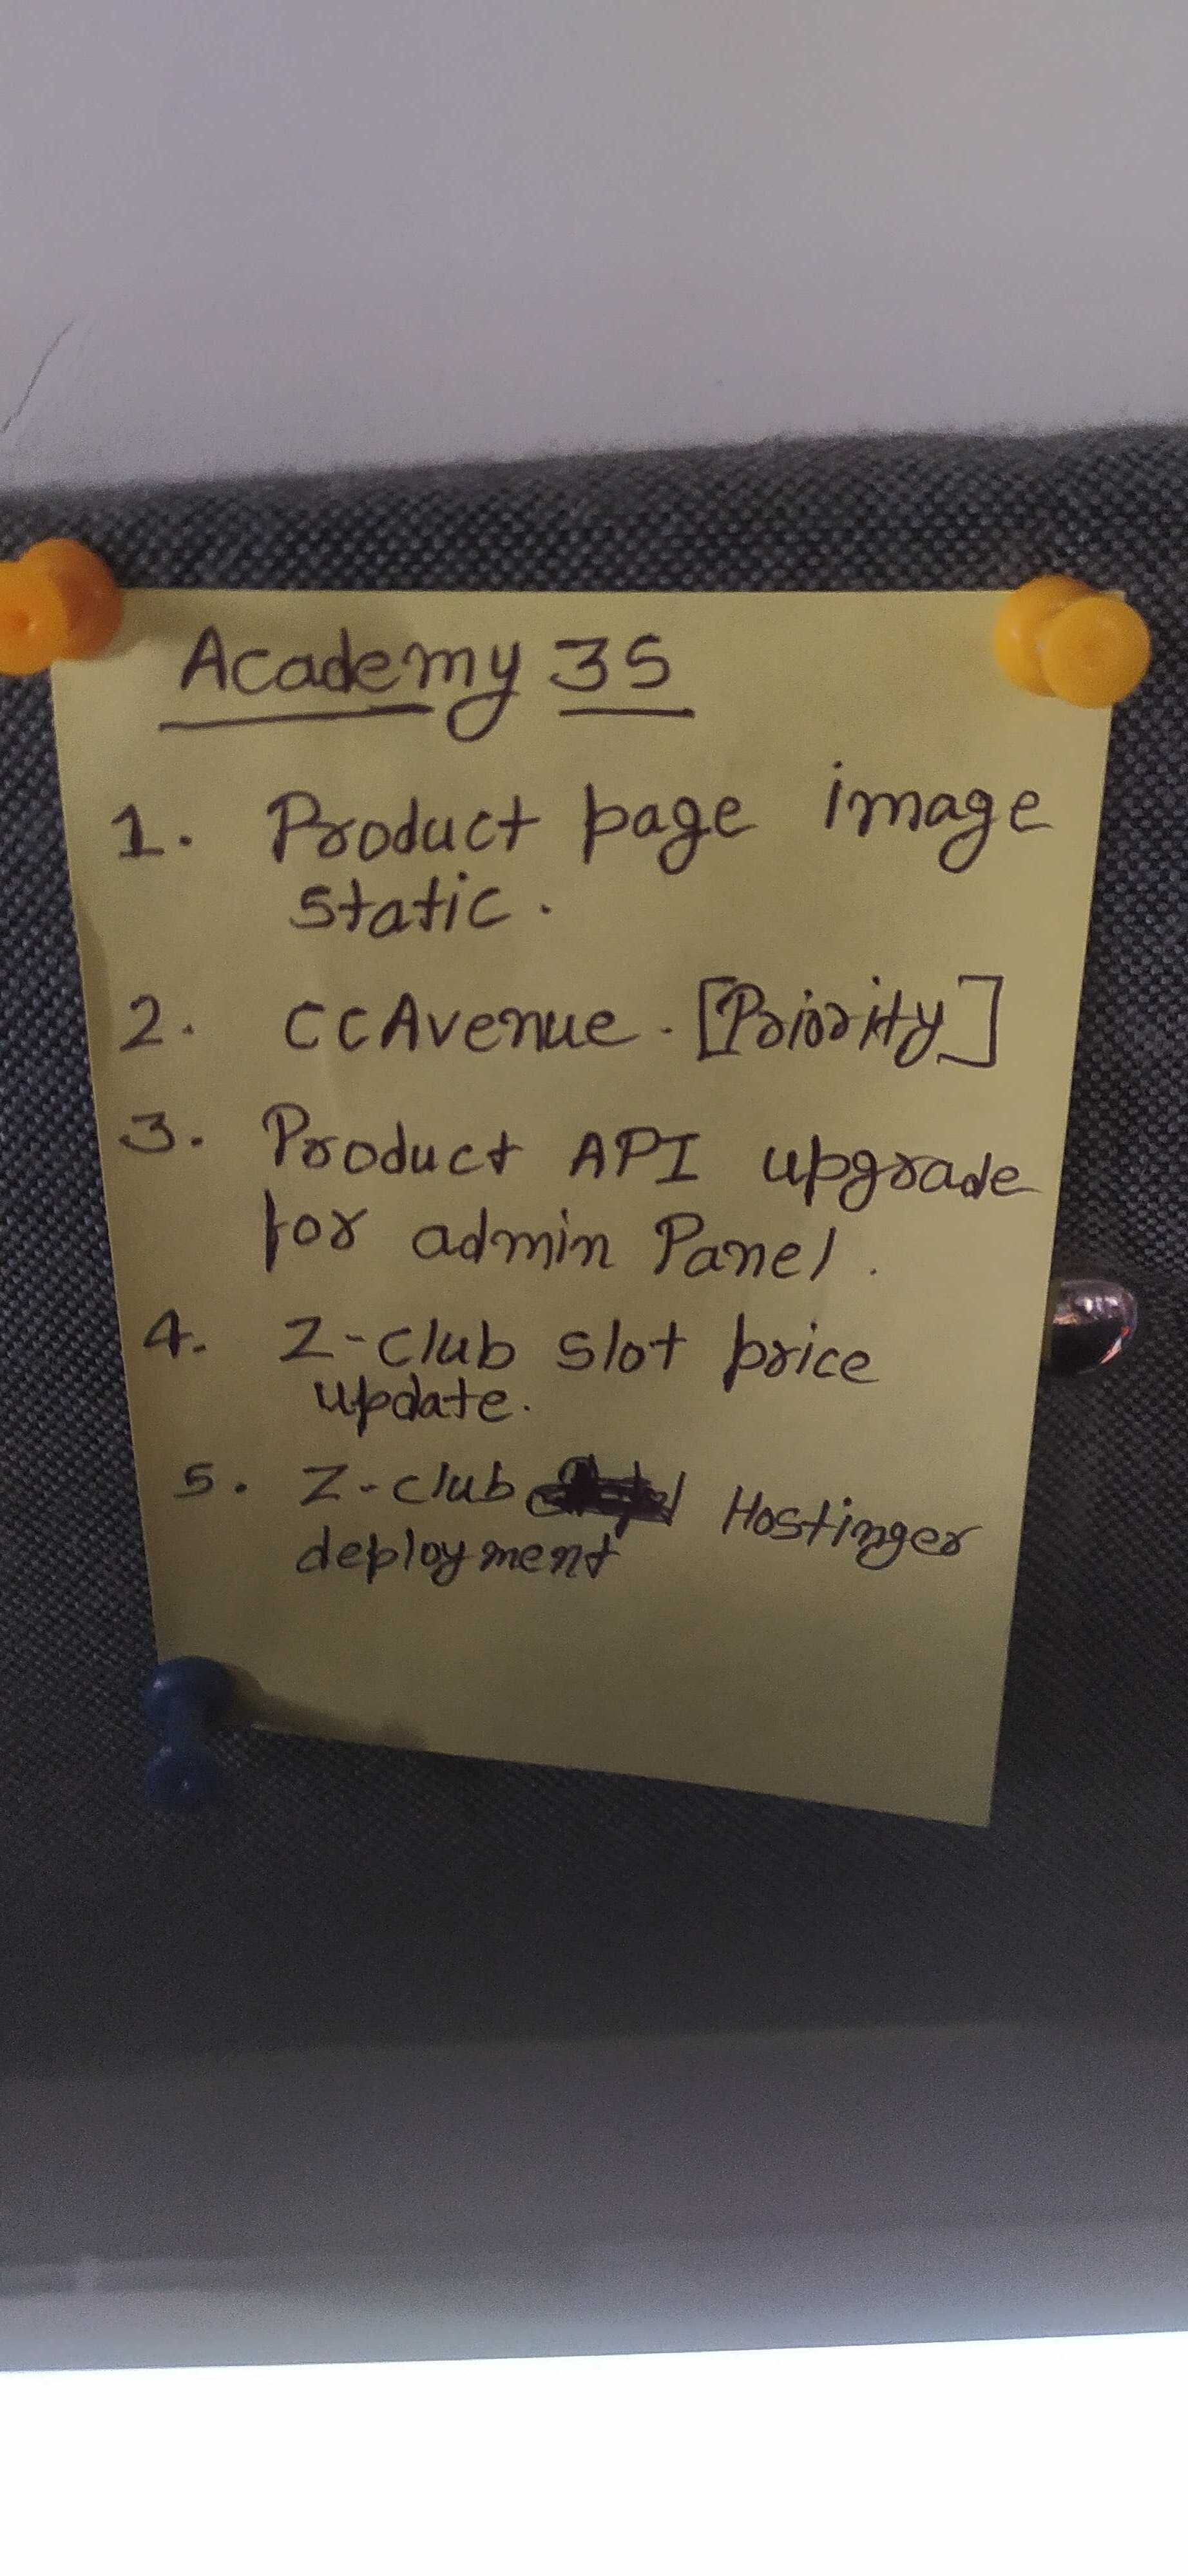 Academy 35
1. Product page image
static.
2. CCAvenue. [Priority]
3. Product API upgrade
for admin Panel.
4. Z-club slot price
update.
5. Z-club Hostinger
deployment